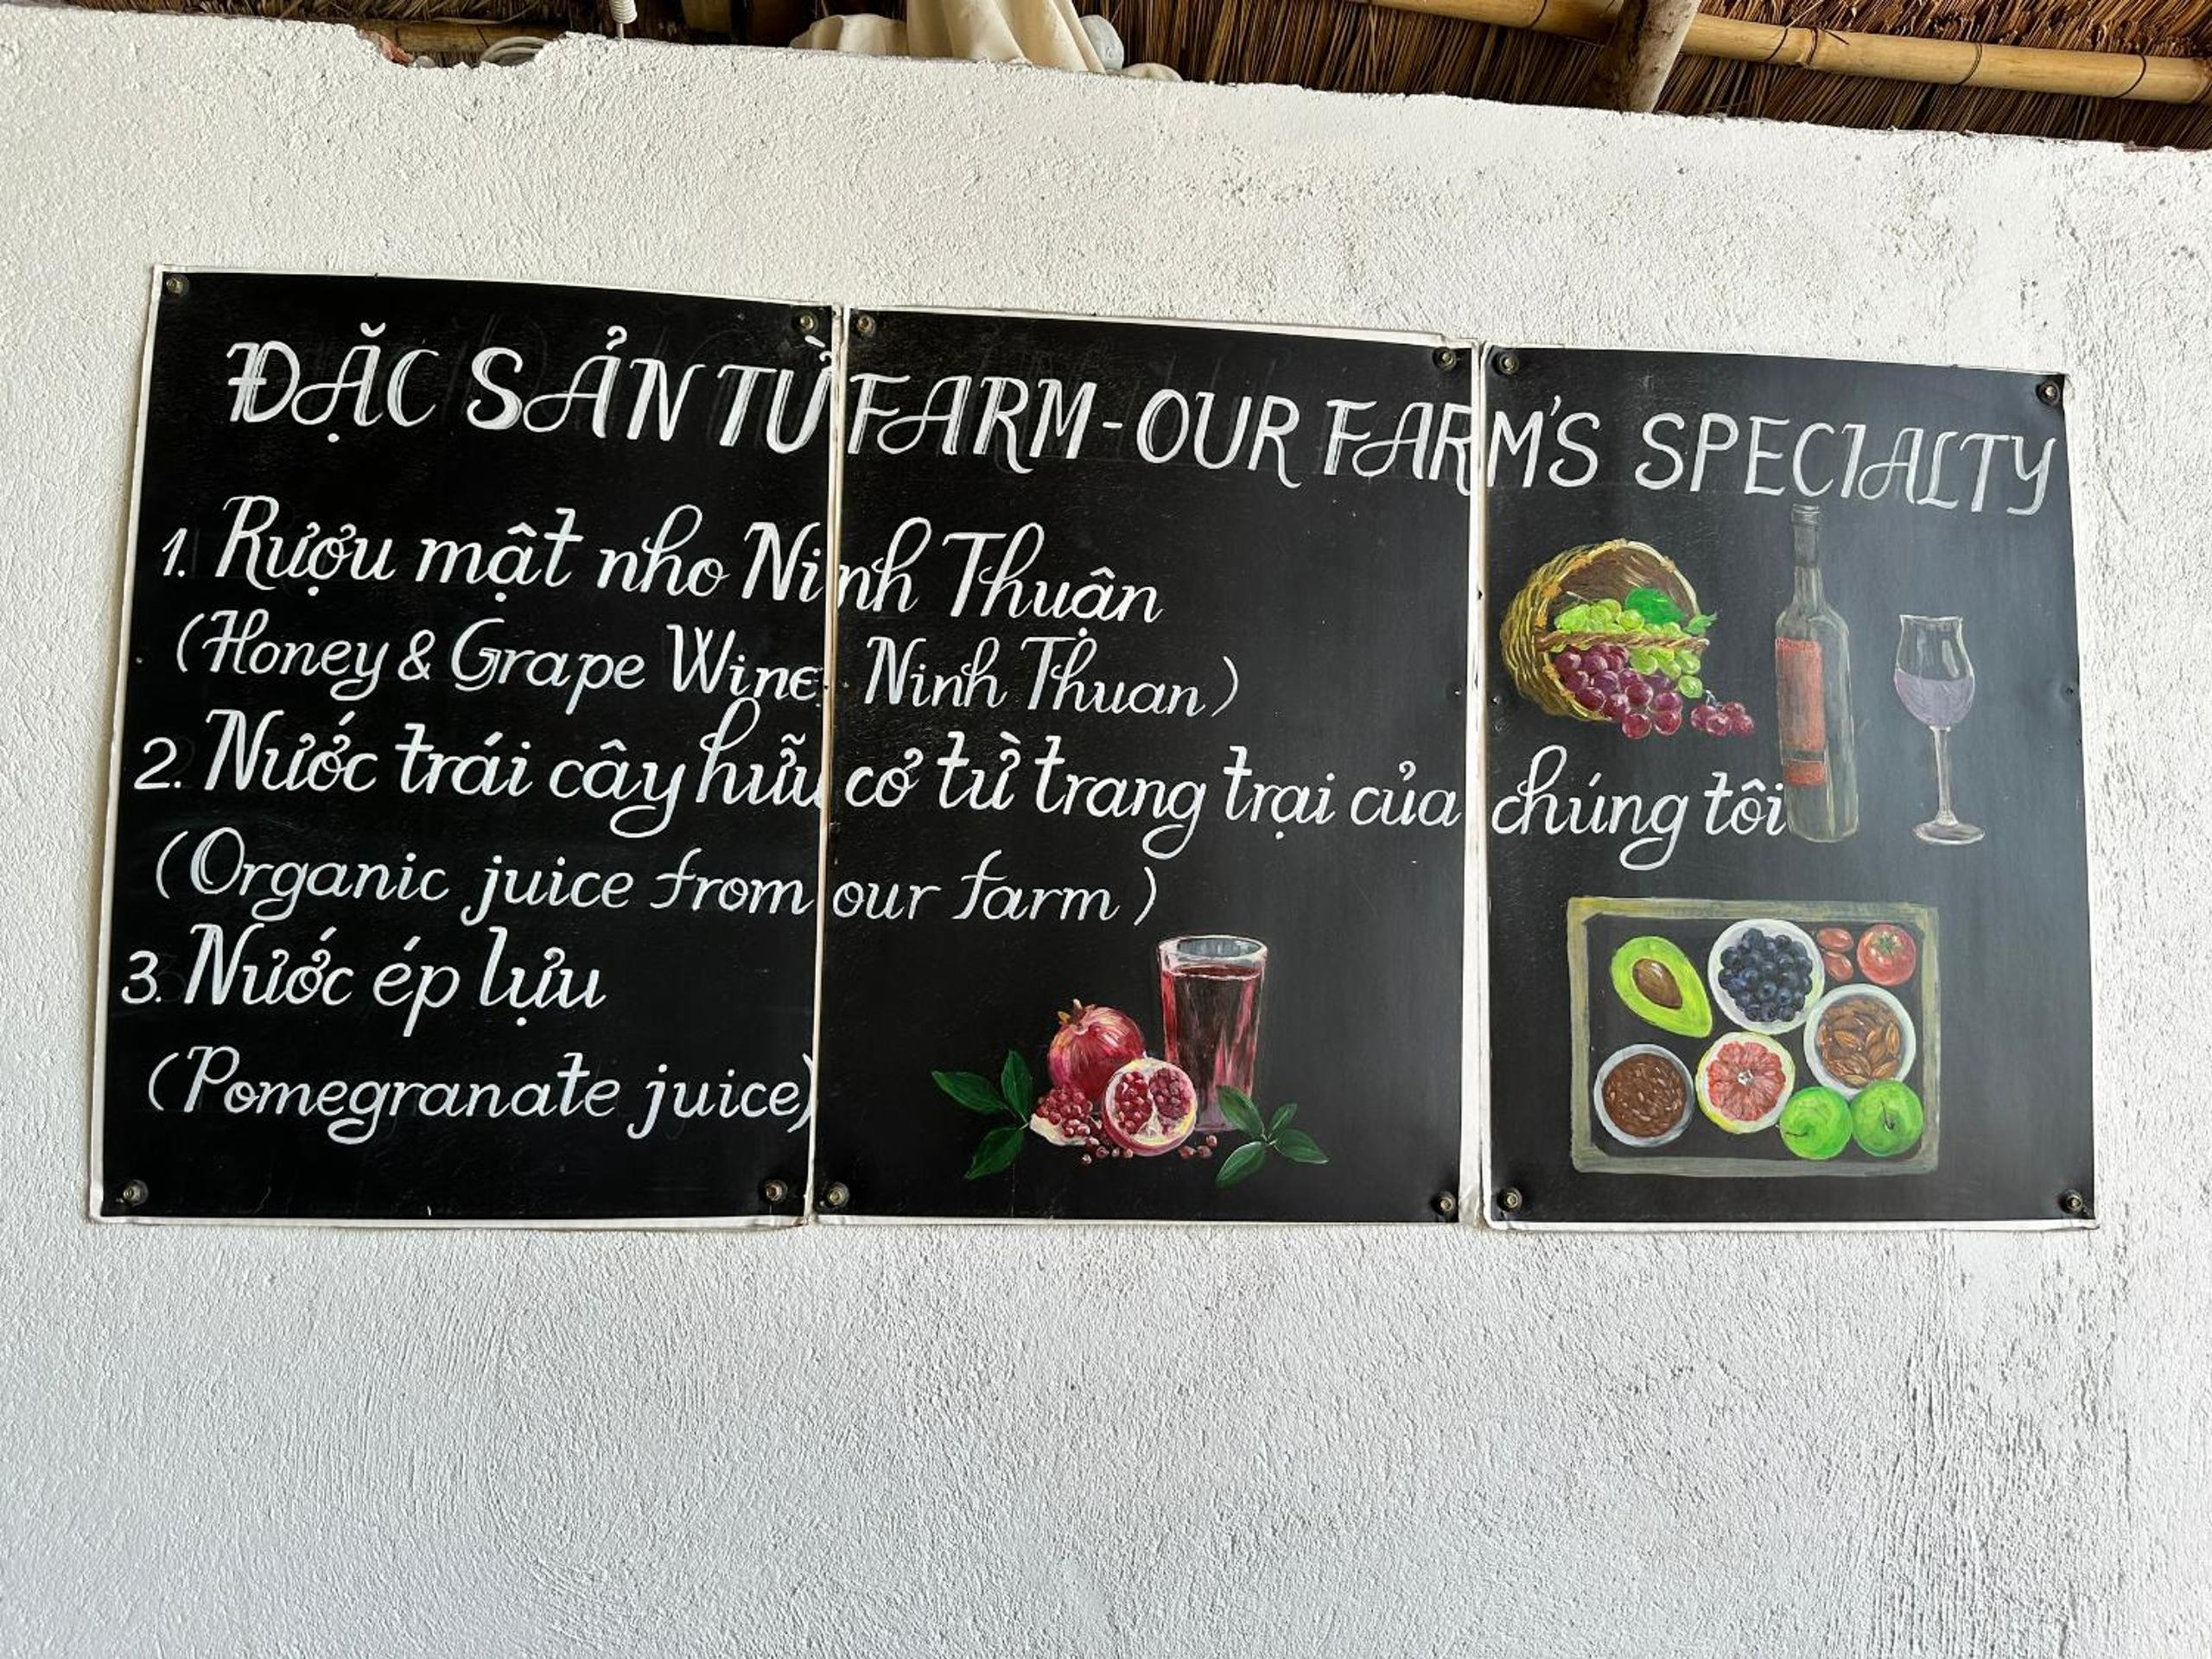 ĐẶC SẢN TỪ FARM - OUR FARM'S SPECIALTY
1. Rượu mật nho Ninh Thuận
(Honey & Grape Wine, Ninh Thuan)
2. Nước trái cây hữu cơ từ trang trại của chúng tôi
(Organic juice from our farm)
3. Nước ép lựu
(Pomegranate juice)